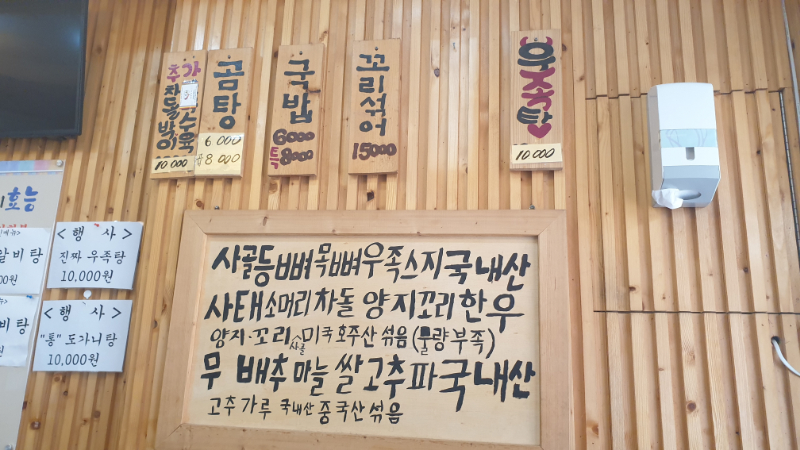 추가
차돌박이
수육
10000
곰탕
6000
8000
국밥
6000
특8000
꼬리섞어
15000
우족탕
10000
효능
<행사>
진짜 우족탕
10,000원
<행사>
"통" 도가니탕
10,000원
알비탕
비탕
사골등뼈목뼈우족스지국내산
사태소머리차돌 양지꼬리한우
양지·꼬리 사골 미국 호주산 섞음 (물량부족)
무 배추 마늘 쌀 고추 파 국내산
고추가루 국내산 중국산 섞음